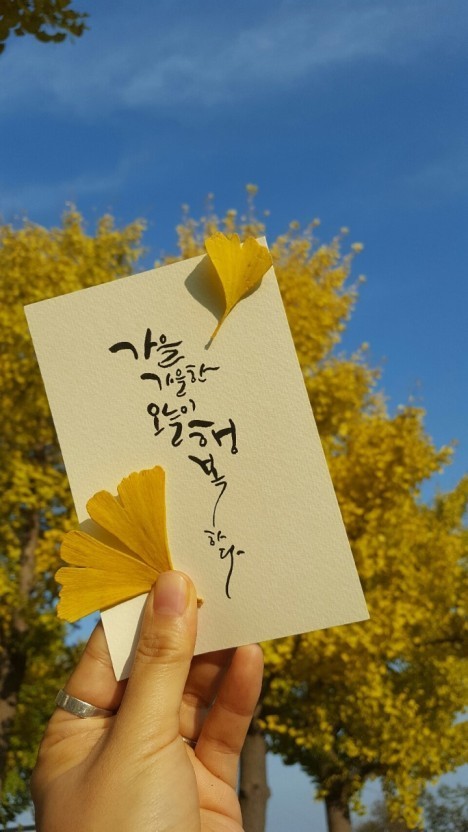 가을
가을한
오늘이
행
복
하
다